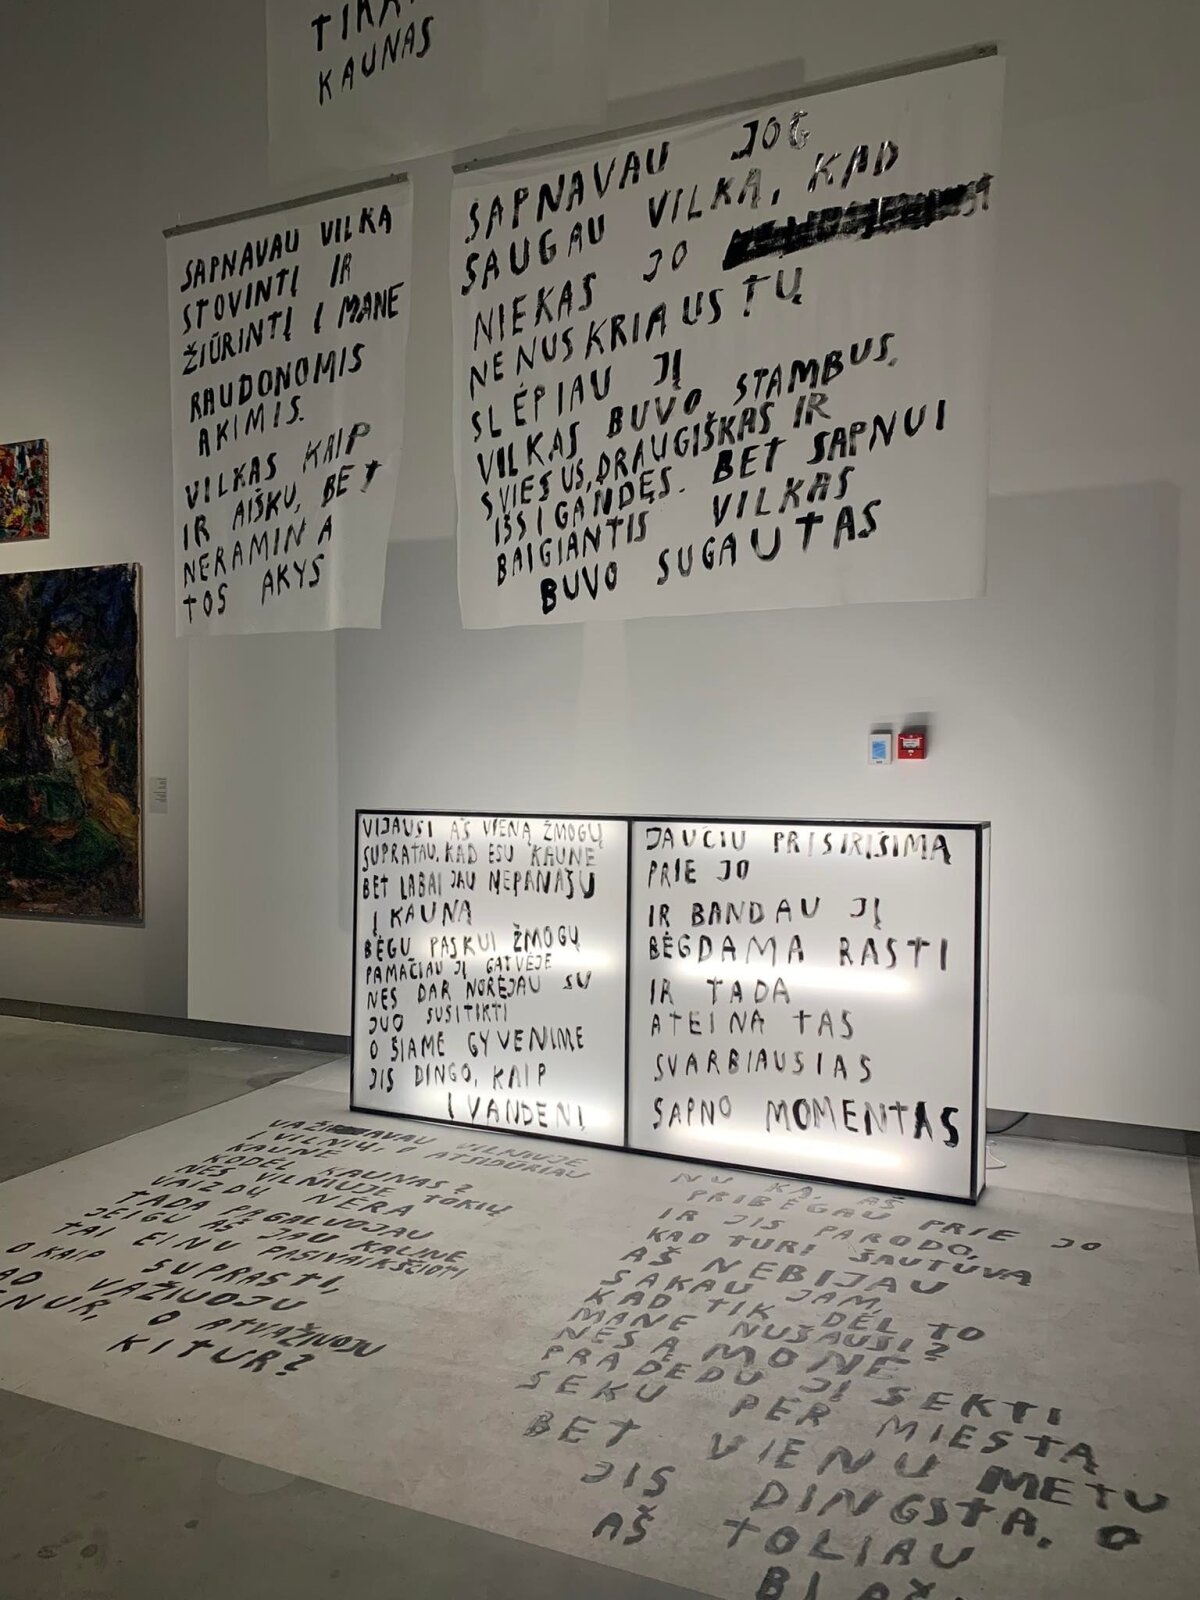 KAUNAS
SAPNAVAU VILKĄ
STOVINTĮ IR
ŽIŪRINTĮ Į MANE
RAUDONOMIS
AKIMIS.
VILKAS KAIP
IR AIŠKU, BET
NERAMINA
TOS AKYS
SAPNAVAU JOG
SAUGAU VILKĄ, KAD
NIEKAS JO
NENUSKRIAUSTŲ
SLĖPIAU JĮ
VILKAS BUVO STAMBUS,
SVIESUS, DRAUGIŠKAS IR
IŠSIGANDĘS. BET SAPNUI
BAIGIANTIS VILKAS
BUVO SUGAUTAS
VIJAUSI AŠ VIENĄ ŽMOGŲ
SUPRATAU, KAD ESU KAUNE
BET LABAI JAU NEPANAŠU
Į KAUNĄ
BĖGU PASKUI ŽMOGŲ
PAMAČIAU JĮ GATVĖJE
NES DAR NORĖJAU SU
JUO SUSITIKTI
O ŠIAME GYVENIME
JIS DINGO, KAIP
Į VANDENĮ
JAUČIU PRISIRIŠIMĄ
PRIE JO
IR BANDAU JĮ
BĖGDAMA RASTI
IR TADA
ATEINA TAS
SVARBIAUSIAS
SAPNO MOMENTAS
VILNIUJE
Į VILNIŲ, O ATSIDŪRIAU
KAUNE
KODĖL KAUNAS?
NES VILNIUJE TOKIŲ
VAIZDŲ NĖRA
TADA PAGALVOJAU
JEIGU AŠ JAU KAUNE
TAI EINU PASIVAIKŠČIOTI
O KAIP SUPRASTI,
VAŽIUOJU
O ATVAŽIUOJU
KITUR?
NU KĄ, AŠ
PRIBĖGAU PRIE JO
IR JIS PARODO,
KAD TURI ŠAUTUVĄ
AŠ NEBIJAU
SAKAU JAM,
KAD TIK DĖL TO
MANE NUŠAUSI?
NESĄMONĖ
PRADEDU JĮ SEKTI
SEKU PER MIESTĄ
BET VIENU METU
JIS DINGSTA. O
AŠ TOLIAU